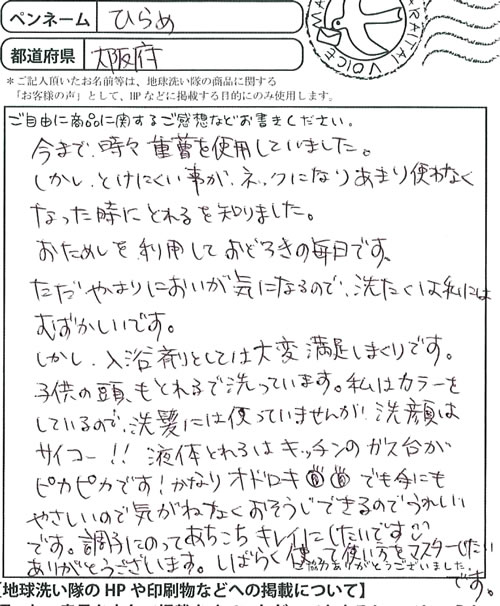 ペンネーム ひらめ
都道府県 大阪府
ARAITAI VOICE
＊ご記入頂いたお名前等は、地球洗い隊の商品に関する
「お客様の声」として、HPなどに掲載する目的にのみ使用します。
ご自由に商品に関するご感想などお書きください。
今まで、時々重曹を使用していました。
しかし、とけにくい事が、ネックになりあまり使わなく
なった時にとれるを知りました。
おためしを利用しておどろきの毎日です。
ただやはりにおいが気になるので、洗たくは私には
むずかしいです。
しかし、入浴剤としては大変満足しまくりです。
子供の頭もとれるで洗っています。私はカラーを
しているので、洗髪には使っていませんが、洗顔は
サイコー!! 液体とれるはキッチンのガス台が
ピカピカです!かなりオドロキ でも手にも
やさしいので気がねなくおそうじできるのでうれしい
です。調子にのってあちこちキレイにしたいです
ありがとうございます。しばらく使って使い方をマスターしたい
です。
ご協力ありがとうございました。
【地球洗い隊のHPや印刷物などへの掲載について】